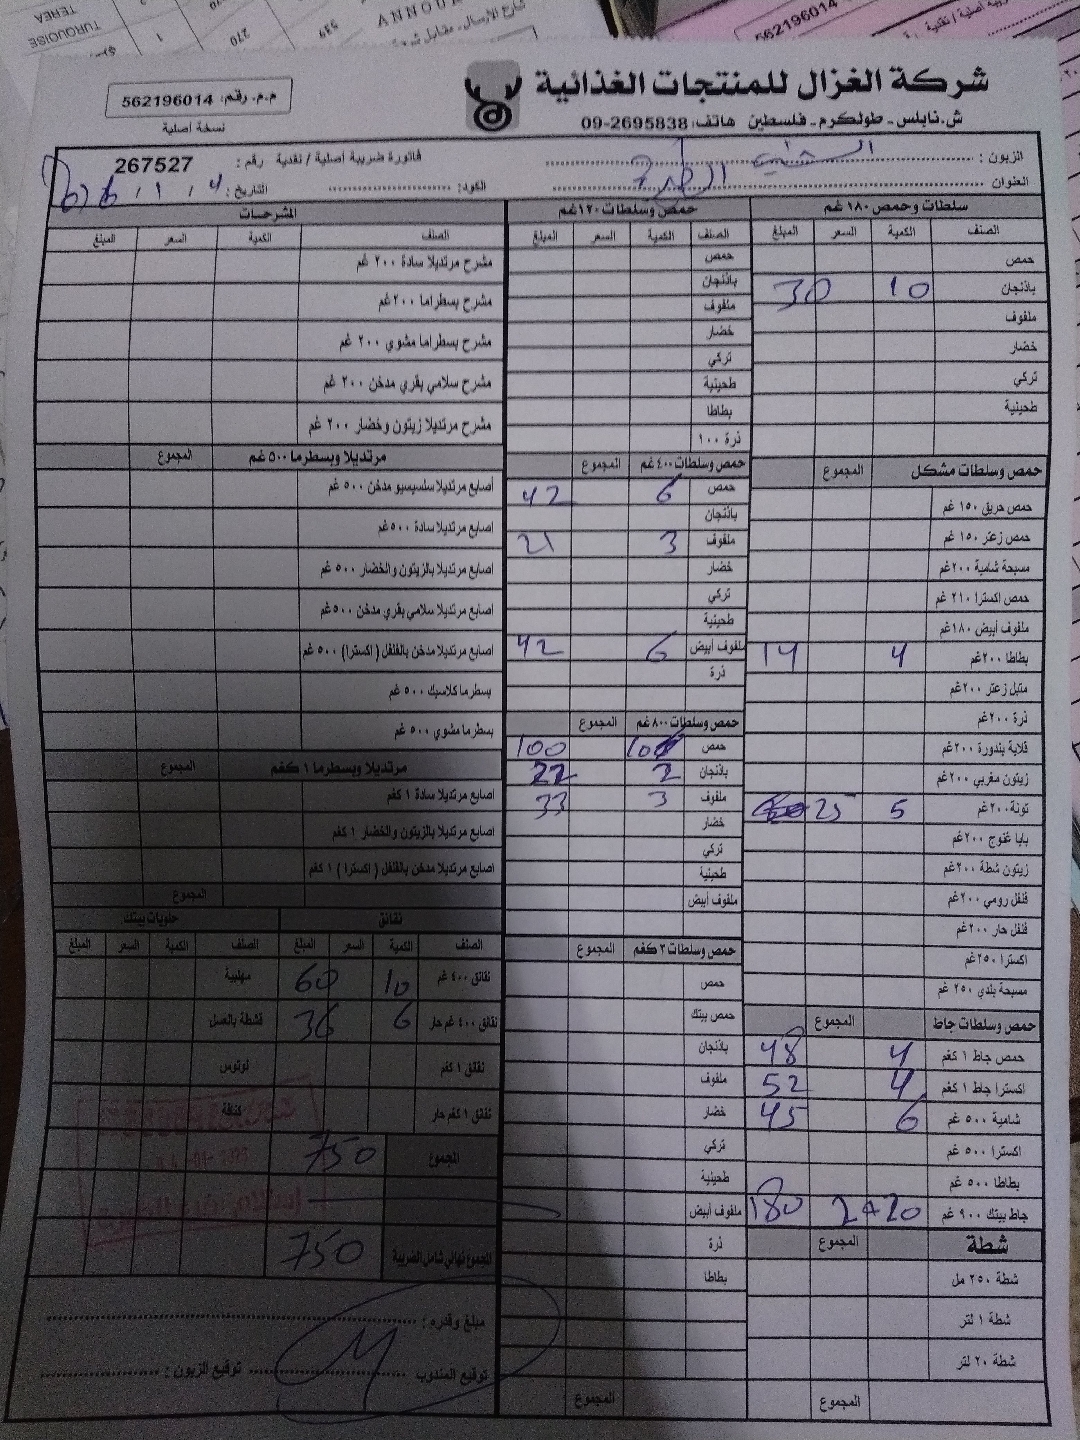 شركة الغزال للمنتجات الغذائية
ش.نابلس - طولكرم - فلسطين هاتف: 2695838-09
م.م. رقم: 562196014
نسخة أصلية
الزبون :
فاتورة ضريبة أصلية / نقدية رقم : 267527
العنوان
الكود:
التاريخ : 4 / 1 /
سلطات وحمص ١٨٠ غم
الصنف الكمية السعر المبلغ
حمص
باذنجان 10 30
ملفوف
خضار
تركي
طحينية
حمص وسلطات مشكل المجموع
حمص حريق ١٥٠ غم
حمص زعتر ١٥٠ غم
مسبحة شامية ٢٠٠غم
حمص إكسترا ٢١٠ غم
ملفوف أبيض ١٨٠غم
بطاطا ٢٠٠غم 4 14
متبل زعتر ٢٠٠غم
ذرة ٢٠٠غم
قلاية بندورة ٢٠٠غم
زيتون مغربي ٢٠٠غم
تونة ٢٠٠غم 5 25
بابا غنوج ٢٠٠غم
زيتون شطة ٢٠٠غم
فلفل رومي ٢٠٠غم
فلفل حار ٢٠٠غم
اكسترا ٢٥٠غم
مسبحة بلدي ٢٥٠ غم
حمص وسلطات جاط المجموع
حمص جاط ١ كغم 4 48
اكسترا جاط ١ كغم 4 52
شامية ٥٠٠ غم 6 45
اكسترا ٥٠٠ غم
بطاطا ٥٠٠ غم
جاط بيتك ٩٠٠ غم 2+20 180
شطة المجموع
شطة ٢٥٠ مل
شطة ١ لتر
شطة ٢٠ لتر
المجموع
حمص وسلطات ١٢٠غم
الصنف الكمية السعر المبلغ
حمص
باذنجان
ملفوف
خضار
تركي
طحينية
بطاطا
ذرة ١٠٠
حمص وسلطات ٤٠٠ غم المجموع
حمص 6 42
باذنجان
ملفوف 3 21
خضار
تركي
طحينية
ملفوف أبيض 6 42
ذرة
حمص وسلطات ٨٠٠ غم المجموع
حمص 100
باذنجان 2 22
ملفوف 3 33
خضار
تركي
طحينية
ملفوف أبيض
حمص وسلطات ٢كغم المجموع
حمص
حمص بيتك
باذنجان
ملفوف
خضار
تركي
طحينية
ملفوف أبيض
ذرة
بطاطا
المجموع
المشرحات
الصنف الكمية السعر المبلغ
مشرح مرتديلا سادة ٢٠٠ غم
مشرح بسطراما ٢٠٠غم
مشرح بسطراما مشوي ٢٠٠ غم
مشرح سلامي بقري مدخن ٢٠٠ غم
مشرح مرتديلا زيتون وخضار ٢٠٠ غم
مرتديلا وبسطرما ٥٠٠ غم المجموع
أصابع مرتديلا سلسيسيو مدخن ٥٠٠ غم
اصابع مرتديلا سادة ٥٠٠غم
اصابع مرتديلا بالزيتون والخضار ٥٠٠ غم
اصابع مرتديلا سلامي بقري مدخن ٥٠٠غم
أصابع مرتديلا مدخن بالفلفل (اكسترا) ٥٠٠ غم
بسطرما كلاسيك ٥٠٠ غم
بسطرما مشوي ٥٠٠ غم
مرتديلا وبسطرما ١ كغم المجموع
اصابع مرتديلا سادة ١ كغم
اصابع مرتديلا بالزيتون والخضار ١ كغم
اصابع مرتديلا مدخن بالفلفل ( إكسترا ) ١ كغم
المجموع
نقانق حلويات بيتك
الصنف الكمية السعر المبلغ الصنف الكمية السعر المبلغ
نقانق ٤٠٠ غم 10 60 مهلبية
نقانق ٤٠٠ غم حار 6 36 قشطة بالعسل
نقانق ١ كغم لوتوس
نقانق ١ كغم حار كنافة
المجموع 750
المجموع نهائي شامل الضريبة 750
مبلغ وقدره :
توقيع المندوب توقيع الزبون :
562196014
TEREA
TURQUOISE
1
270
539